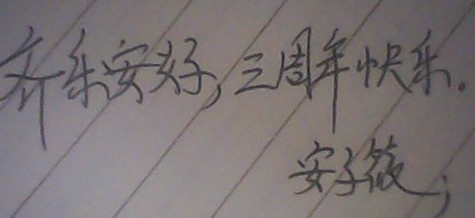 齐乐安好,三周年快乐.
安子筱;